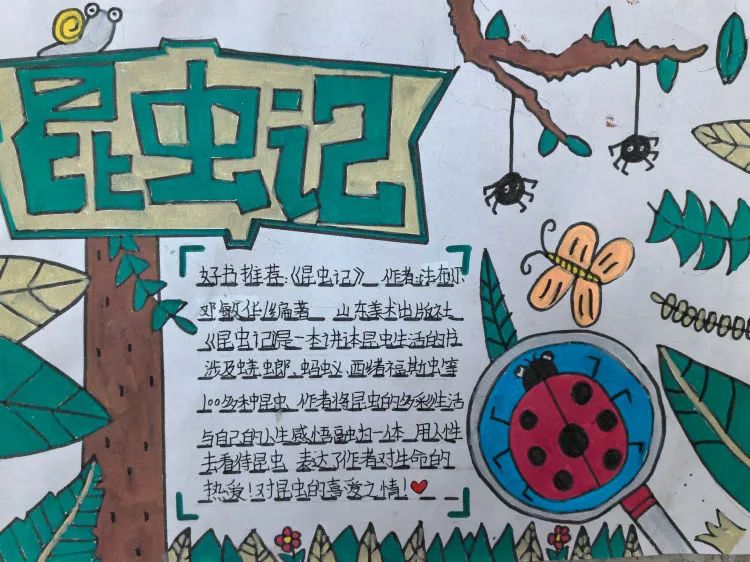 昆虫记
好书推荐:《昆虫记》 作者:法布尔
邓敏华/编著 山东美术出版社
《昆虫记》是一本讲述昆虫生活的书
涉及蜣螂、蚂蚁、西绪福斯虫等
100多种昆虫 作者将昆虫的多彩生活
与自己的人生感悟融为一体 用人性
去看待昆虫 表达了作者对生命的
热爱!对昆虫的喜爱之情!